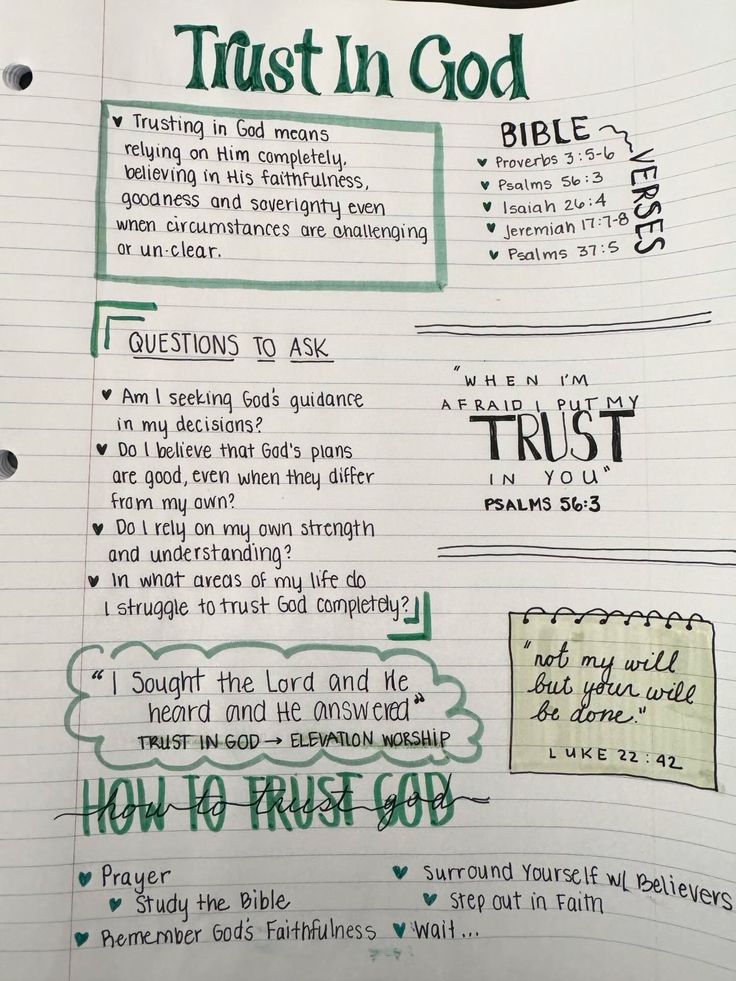 Trust In God
♥ Trusting in God means
relying on Him completely,
believing in His faithfulness,
goodness and soverignty even
when circumstances are challenging
or un-clear.
BIBLE
VERSES
♥ Proverbs 3:5-6
♥ Psalms 56:3
♥ Isaiah 26:4
♥ Jeremiah 17:7-8
♥ Psalms 37:5
QUESTIONS TO ASK
♥ Am I seeking God's guidance
in my decisions?
♥ Do I believe that God's plans
are good, even when they differ
from my own?
♥ Do I rely on my own strength
and understanding?
♥ In what areas of my life do
I struggle to trust God completely?
"WHEN I'M
AFRAID I PUT MY
TRUST
IN YOU"
PSALMS 56:3
"not my will
but your will
be done."
LUKE 22:42
"I Sought the Lord and He
heard and He answered"
TRUST IN GOD → ELEVATION WORSHIP
HOW TO TRUST GOD
how to trust god
♥ Prayer
♥ Study the Bible
♥ Remember God's Faithfulness
♥ Surround Yourself w/ Believers
♥ Step out in Faith
♥ Wait...